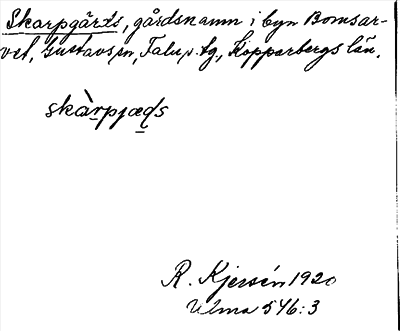 Skarpgärds, gårdsnamn i byn Bomsar-
vet, Gustavs sn, Falu s. tg, Kopparbergs län.
skàrpjæds
R. Kjersén 1920
Ulma 546:3